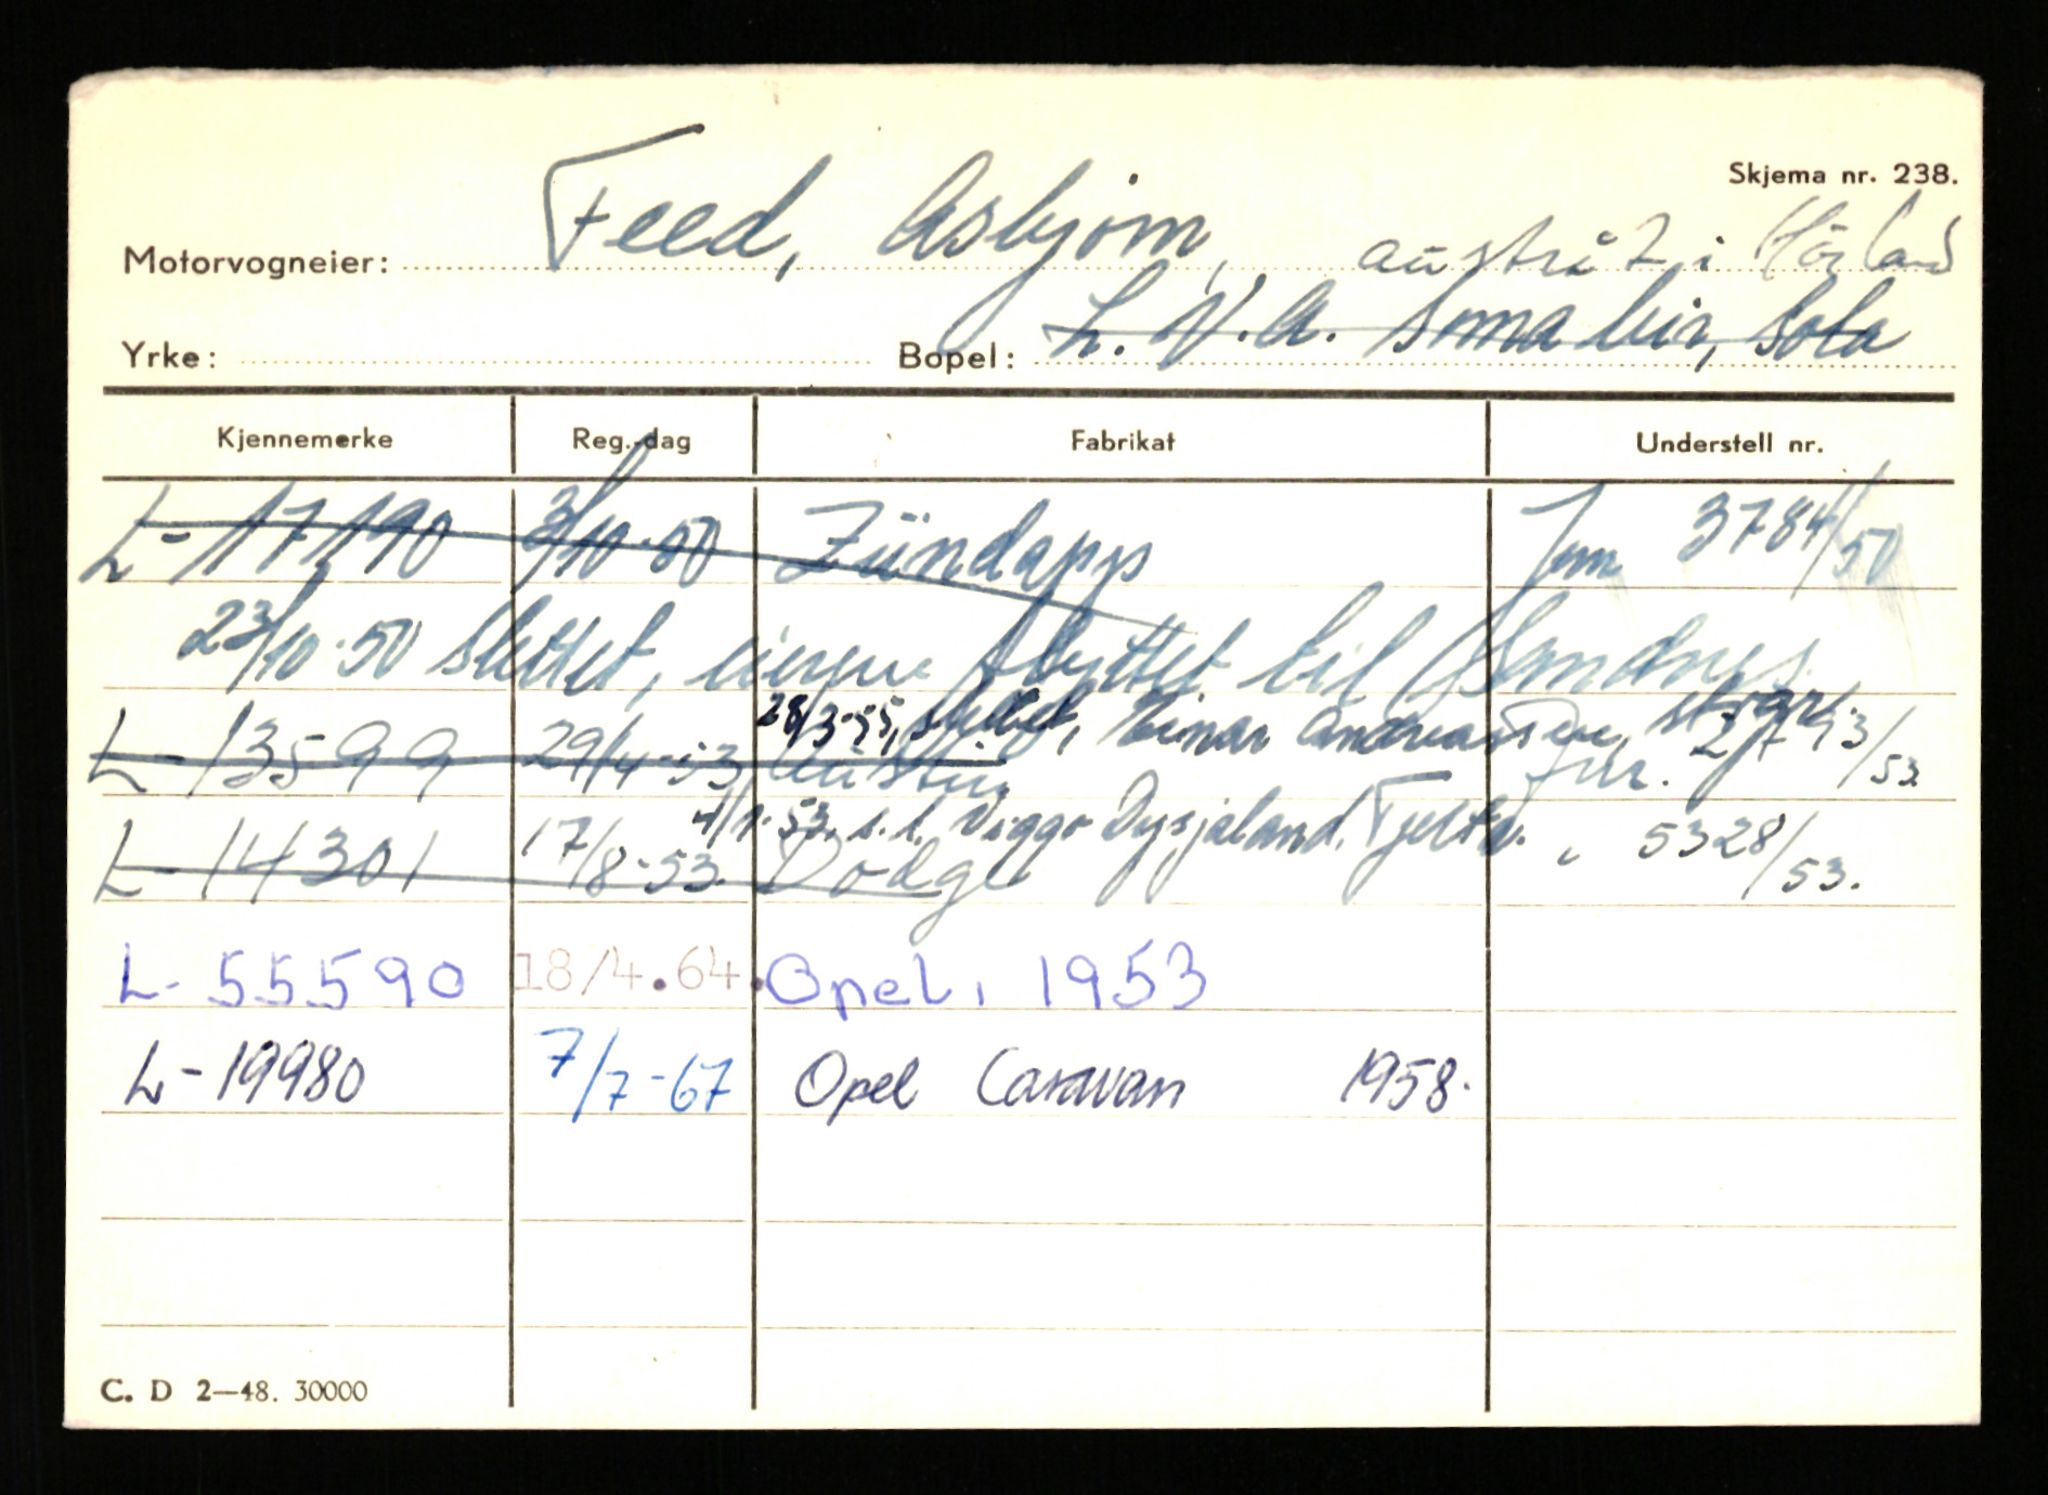 Skjema nr. 238.
Motorvogneier: Feed, Asbjørn, Austråt i Høyland
Yrke: Bopel: L.V.A. Soma leir, Sola
Kjennemerke Reg.-dag Fabrikat Understell nr.
L-17190 3/10-50 Zündapp Jnr 3784/50
23/10-50 slettet, eieren flyttet til Sandnes.
28/3-55, slettet, Einar Andreassen,
L-13599 29/4-53 Austin Jnr. 2793/53
4/9-53. s.l. Viggo Dysjaland. Tjelta.
L-14301 17/8-53. Dodge " 5328/53.
L-55590 18/4.64. Opel, 1953
L-19980 7/7-67 Opel Caravan 1958.
C. D 2—48. 30000